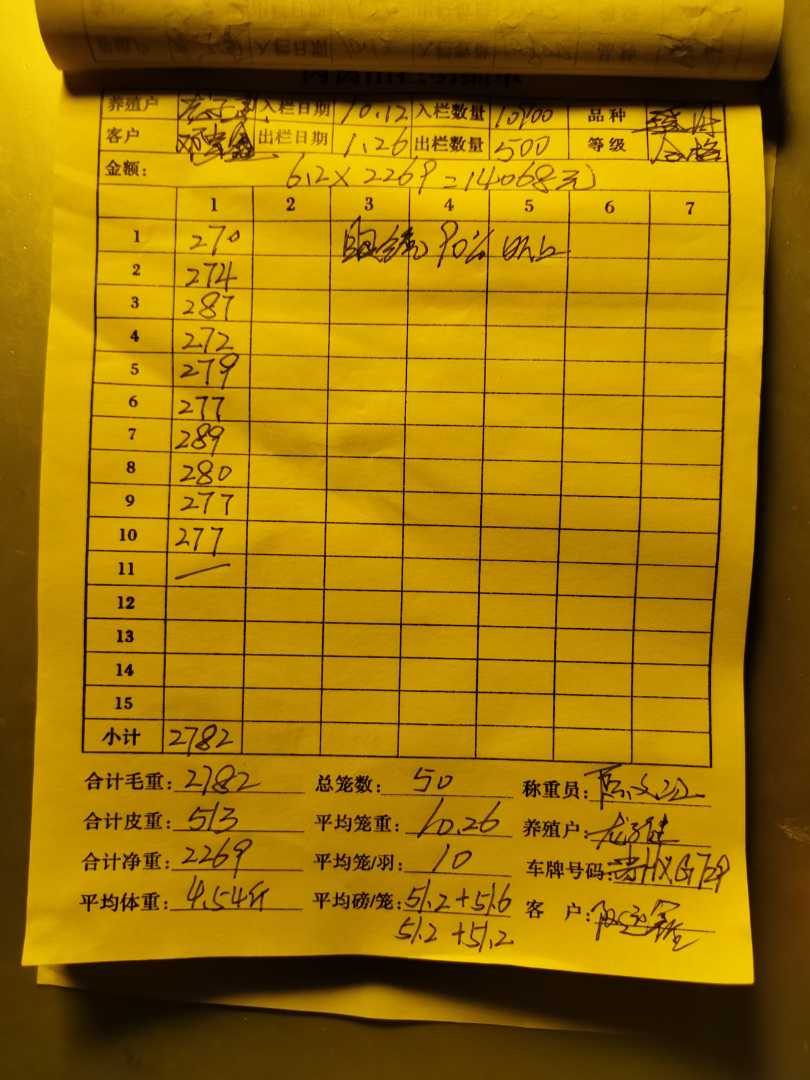 养殖户 入栏日期 10.12 入栏数量 10900 品种
客户 出栏日期 1.26 出栏数量 500 等级 合格
金额: 6.2×2269=14068元
1 2 3 4 5 6 7
1 270 90%以上
2 274
3 287
4 272
5 279
6 277
7 289
8 280
9 277
10 277
11 —
12
13
14
15
小计 2782
合计毛重: 2782 总笼数: 50 称重员:
合计皮重: 513 平均笼重: 10.26 养殖户:
合计净重: 2269 平均笼/羽: 10 车牌号码:
平均体重: 4.54斤 平均磅/笼: 51.2+51.6 客 户:
51.2+51.2